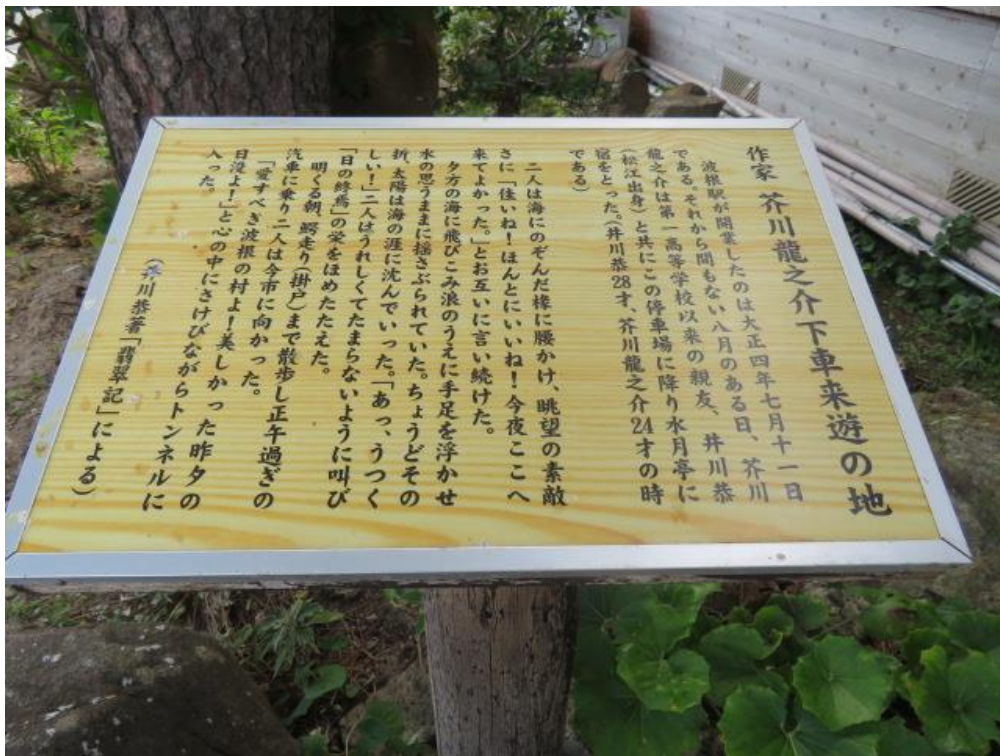 作家 芥川龍之介下車来遊の地
波根駅が開業したのは大正四年七月十一日
である。それから間もない八月のある日、芥川
龍之介は第一高等学校以来の親友、井川恭
(松江出身)と共にこの停車場に降り水月亭に
宿をとった。井川恭28才、芥川龍之介24才の時
である)
二人は海にのぞんだ椽に腰かけ、眺望の素敵
さに「佳いね!ほんとにいいね!今夜ここへ
来てよかった。」とお互いに言い続けた。
夕方の海に飛びこみ浪のうえに手足を浮かせ
水の思うままに揺さぶられていた。ちょうどその
折、太陽は海の涯に沈んでいった。「あっ、うつく
しい!」二人はうれしくてたまらないように叫び
「日の終焉」の栄をほめたたえた。
明くる朝、鰐走り(掛戸)まで散歩し正午過ぎの
汽車に乗り二人は今市に向かった。
「愛すべき波根の村よ!美しかった昨夕の
日没よ!」と心の中にさけびながらトンネルに
入った。
(井川恭著「翡翠記」による)